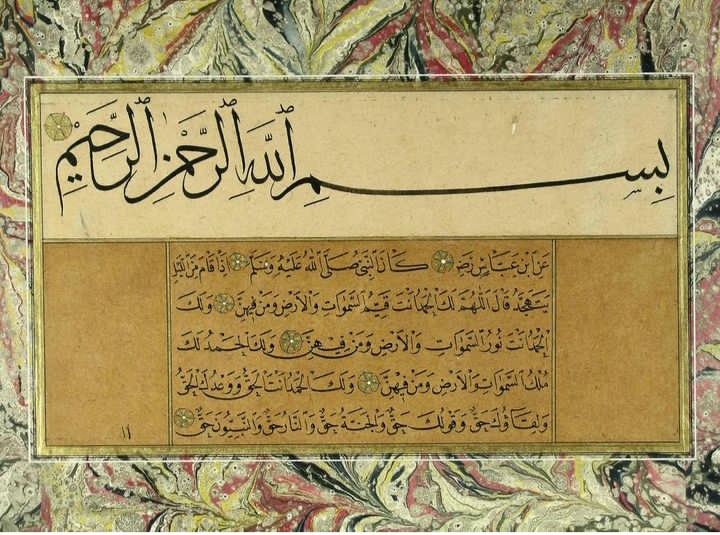 بِسْمِ اللَّهِ الرَّحْمَٰنِ الرَّحِيمِ
عَنِ ابْنِ عَبَّاسٍ رَضِ كَانَ النَّبِيُّ صَلَّى اللَّهُ عَلَيْهِ وَسَلَّمَ اِذَا قَامَ مِنَ الَّيْلِ
يَتَهَجَّدُ قَالَ اللَّهُمَّ لَكَ الْحَمْدُ اَنْتَ قَيِّمُ السَّمٰوَاتِ وَالْاَرْضِ وَمَنْ فِيهِنَّ وَلَكَ
الْحَمْدُ اَنْتَ نُورُ السَّمٰوَاتِ وَالْاَرْضِ وَمَنْ فِيهِنَّ وَلَكَ الْحَمْدُ لَكَ
مُلْكُ السَّمٰوَاتِ وَالْاَرْضِ وَمَنْ فِيهِنَّ وَلَكَ الْحَمْدُ اَنْتَ الْحَقُّ وَوَعْدُكَ الْحَقُّ
وَلِقَاؤُكَ حَقٌّ وَقَوْلُكَ حَقٌّ وَالْجَنَّةُ حَقٌّ وَالنَّارُ حَقٌّ وَالنَّبِيُّونَ حَقٌّ